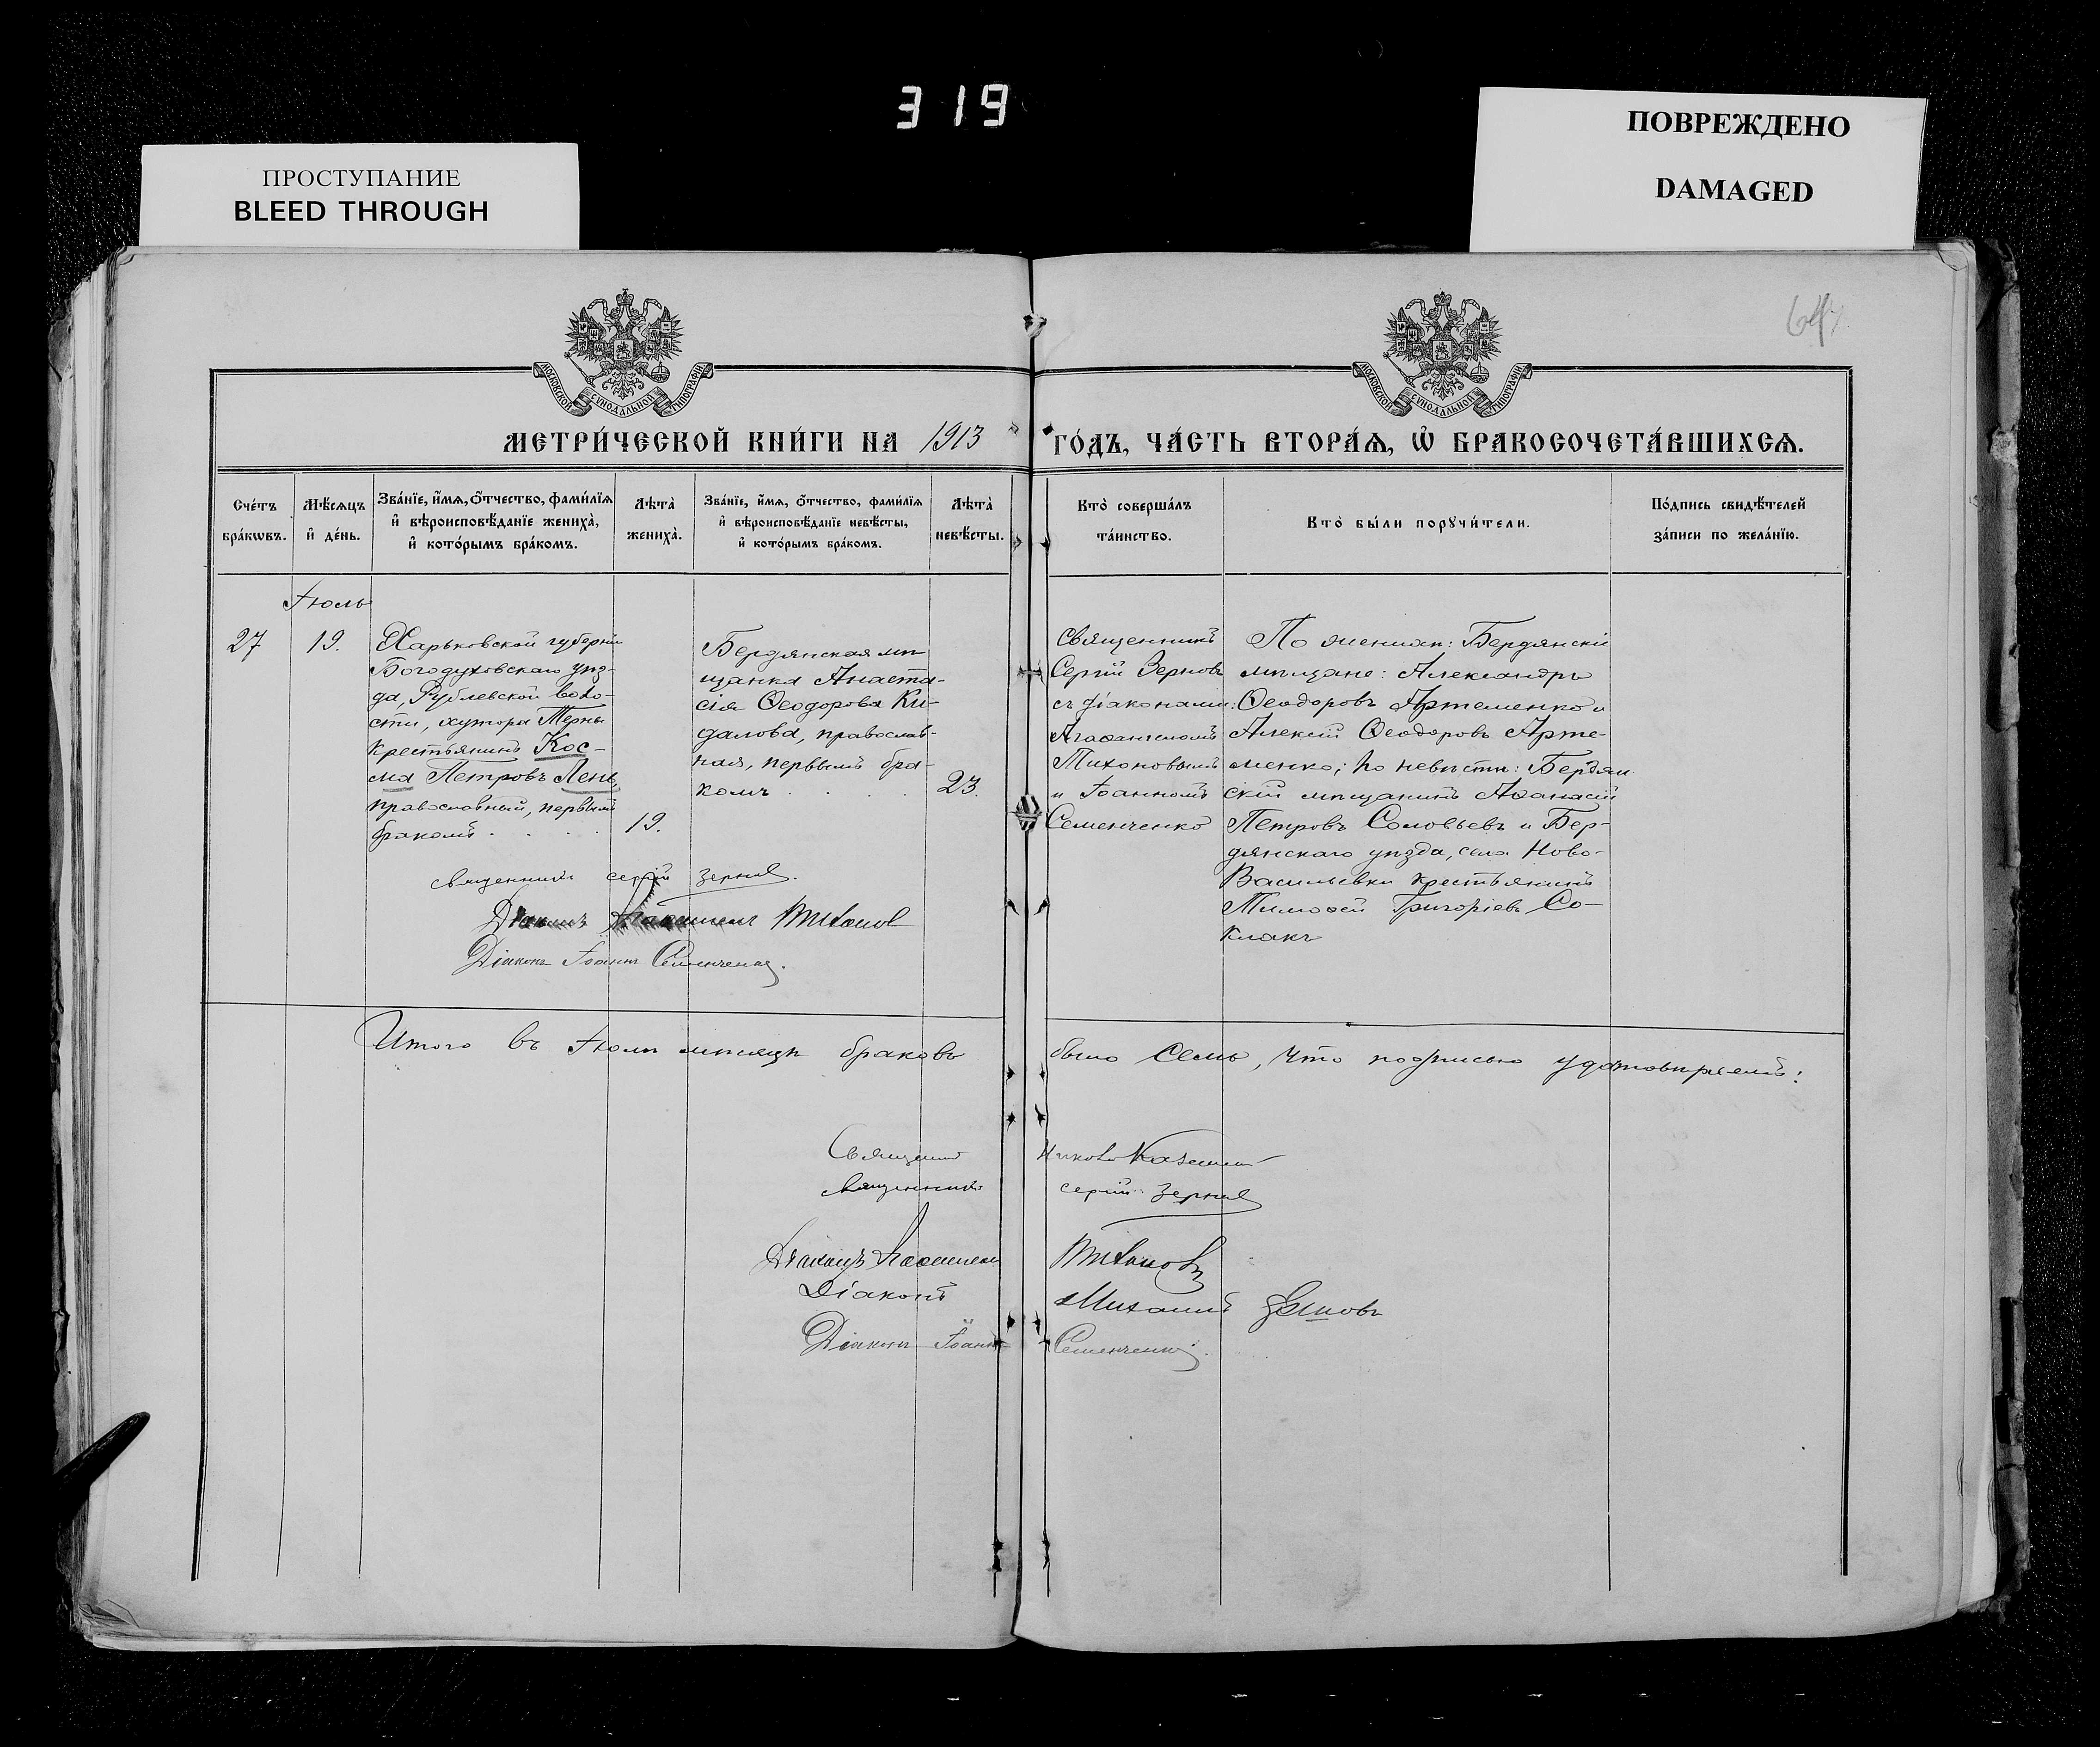 319
ПРОСТУПАНИЕ
BLEED THROUGH
ПОВРЕЖДЕНО
DAMAGED
МОСКОВСКОЙ СУНОДАЛЬНОЙ ТИПОГРАФІИ
МОСКОВСКОЙ СУНОДАЛЬНОЙ ТИПОГРАФІИ
МЕТРИ́ЧЕСКОЙ КНИ́ГИ НА 1913 ГО́ДЪ, ЧА́СТЬ ВТОРА́Ѧ, Ѽ БРАКОСОЧЕТА́ВШИХСѦ.
Сче́тъ
бра́кѡвъ.
Мѣ́сѧцъ
и҆ де́нь.
Зва́нїе, и҆́мѧ, ѻ҆́тчество, фами́лїѧ
и҆ вѣроисповѣ́данїе жениха̀,
и҆ кото́рымъ бра́комъ.
Лѣта̀
жениха̀.
Зва́нїе, и҆́мѧ, ѻ҆́тчество, фами́лїѧ
и҆ вѣроисповѣ́данїе невѣ́сты,
и҆ кото́рымъ бра́комъ.
Лѣта̀
невѣ́сты.
Кто̀ соверша́лъ
та́инство.
Кто̀ бы́ли порꙋчи́тели.
По́дпись свидѣ́телей
за́писи по жела́нїю.
Іюль
27
19.
Харьковской губерніи
Богодуховскаго уѣз-
да, Рублевской воло-
сти, хутора Терны
крестьянинъ Кос-
ма Петровъ Лень,
православный, первымъ
бракомъ
19.
Бердянская мѣ-
щанка Анаста-
сія Ѳеодорова Ки-
далова, православ-
ная, первымъ бра-
комъ
23.
Священникъ
Сергій Зерновъ
съ діаконами:
Агаѳангеломъ
Тихоновымъ
и Іоанномъ
Семенченко
По женихѣ: Бердянскіе
мѣщане: Александръ
Ѳеодоровъ Артеменко и
Алексій Ѳеодоровъ Арте-
менко; по невѣстѣ: Бердян
скій мѣщанинъ Аѳанасій
Петровъ Соловьевъ и Бер-
дянскаго уѣзда, села Ново-
Васильевки крестьянинъ
Тимоѳей Григоріевъ Со-
клакъ
Священникъ Сергій Зерновъ.
Діаконъ Тихонов
Діаконъ Іоаннъ Семенченко.
Итого въ Іюлѣ мѣсяцѣ браковъ было семь, что подписью удостовѣряемъ:
Священникъ
Священникъ Сергій Зерновъ
Діаконъ Агаѳангелъ Тихоновъ
Діаконъ Михаилъ Зыковъ
Діаконъ Іоаннъ Семенченко.